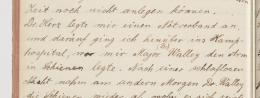 Zeit noch nicht anlegen können.
Dr. Herz legte mir einen Notverband an.
und darauf ging ich hinüber ins Kamp-
hospital, wo mir Major Walley den Arm
in Schienen legte. Nach einer schlaflosen
Nacht nahm am andern Morgen Dr. Walley
die Schienen wieder ab